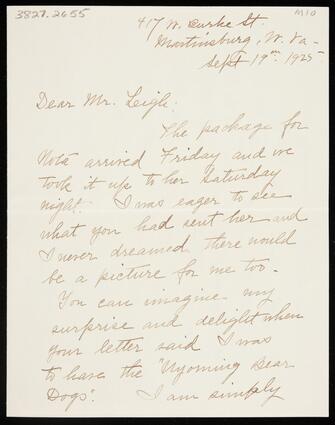 3827.2655
M10
417 W. Burke St.
Martinsburg, W. Va-
Sept 19th 1925
Dear Mr. Leigh:
The package for
Note arrived Friday and we
took it up to her Saturday
night. I was eager to see
what you had sent her and
I never dreamed there would
be a picture for me too.
You can imagine my
surprise and delight when
your letter said I was
to have the "Wyoming Bear
Dogs". I am simply